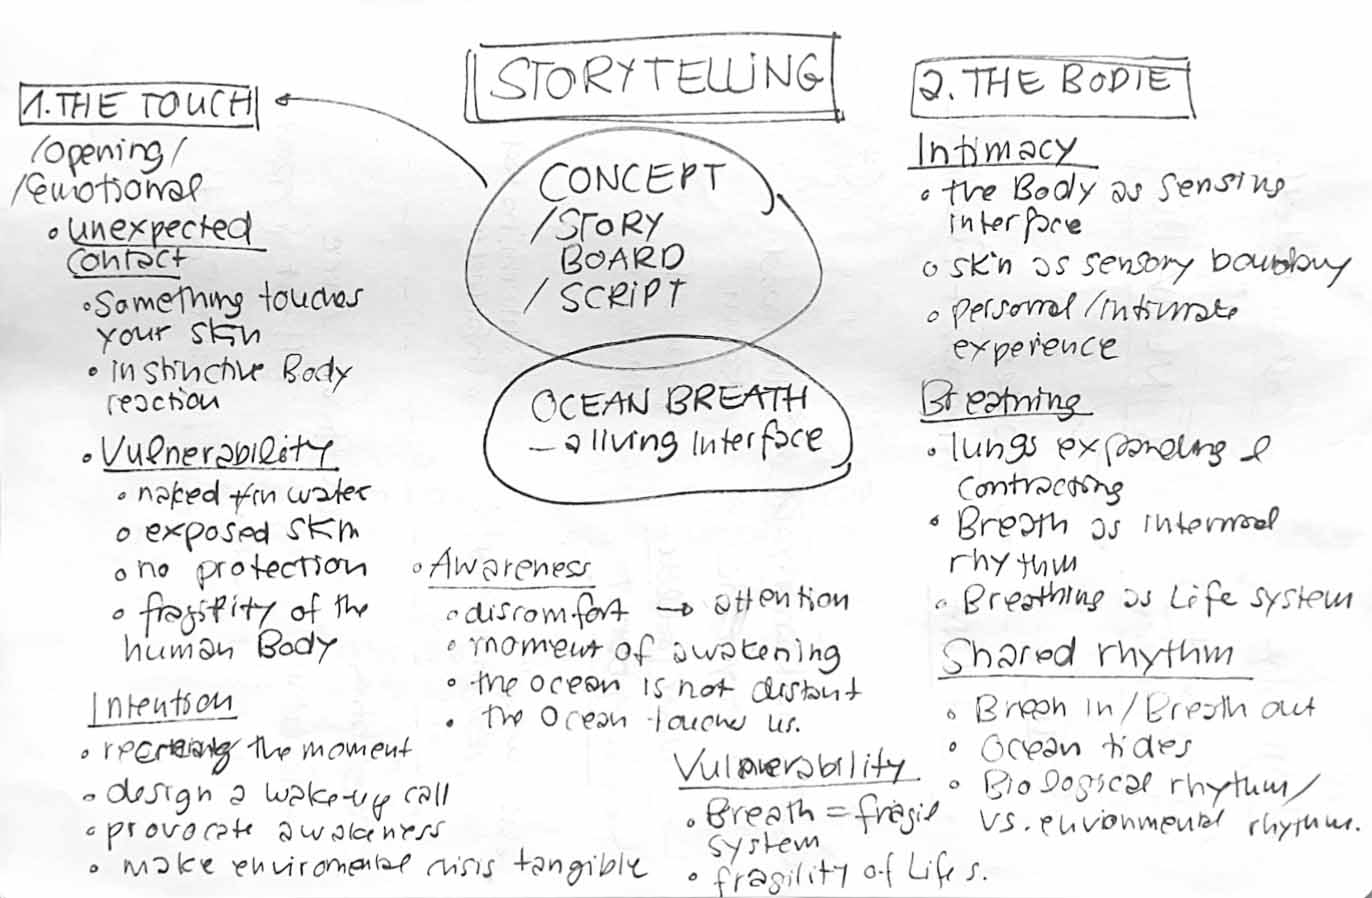 STORYTELLING
CONCEPT
/STORY
BOARD
/ SCRIPT
OCEAN BREATH
– a living interface
1. THE TOUCH
/Opening/
/Emotional
• unexpected
contact
• Something touches
your skin
• instinctive Body
reaction
• Vulnerability
• naked in water
• exposed skin
• no protection
• fragility of the
human Body
Intention
• recreating the moment
• design a wake-up call
• provocate awakeness
• make enviromental crisis tangible
• Awareness
• discomfort → attention
• moment of awakening
• the ocean is not distant
• the Ocean touches us.
2. THE BODIE
Intimacy
• the Body as sensing
interface
• skin as sensory boundary
• personal/intimate
experience
Breathing
• lungs expanding &
contracting
• Breath as internal
rhythm
• Breathing as Life system
Shared rhythm
• Breath in/Breath out
• Ocean tides
• Biological rhythm/
vs. environmental rhythm.
Vulnerability
• Breath = fragile
system
• fragility of Life s.